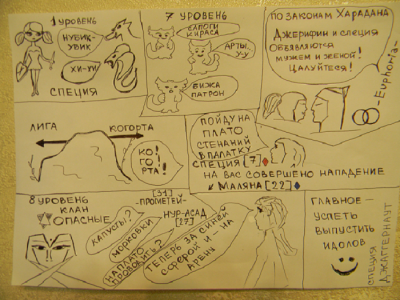 1 УРОВЕНЬ
НУБИК-
УВИК
ХИ-ХИ
СПЕЦИЯ
7 УРОВЕНЬ
САПОГИ
КИРАСА
АРТЫ,
УУ
ВИЖА
ПАТРОН
ПО ЗАКОНАМ ХАРАДАНА
ДЖЕРИФИН И СПЕЦИЯ
ОБЪЯВЛЯЮТСЯ
МУЖЕМ И ЖЕНОЙ!
ЦАЛУЙТЕСЬ!
Euphoria~
ЛИГА
КОГОРТА
КО!
ГО
РТА!
ПОЙДУ НА
ПЛАТО
СТЕНАНИЙ
В ПАЛАТКУ
СПЕЦИЯ [7]
НА ВАС СОВЕРШЕНО НАПАДЕНИЕ
МАЛЯНА [22]
8 УРОВЕНЬ
КЛАН
ОПАСНЫЕ
[31]
-ПРОМЕТЕЙ-
НУР-АСАД
[27]
КАПУСТЫ?
МОРКОВКИ?
НА ПЛАТО
ПРОВОДИТЬ?
ТЕПЕРЬ ЗА СИНЕЙ
СФЕРОЙ И НА
АРЕНУ
ГЛАВНОЕ -
УСПЕТЬ
ВЫПУСТИТЬ
ИДОЛОВ
СПЕЦИЯ
ДЖАГГЕРНАУТ